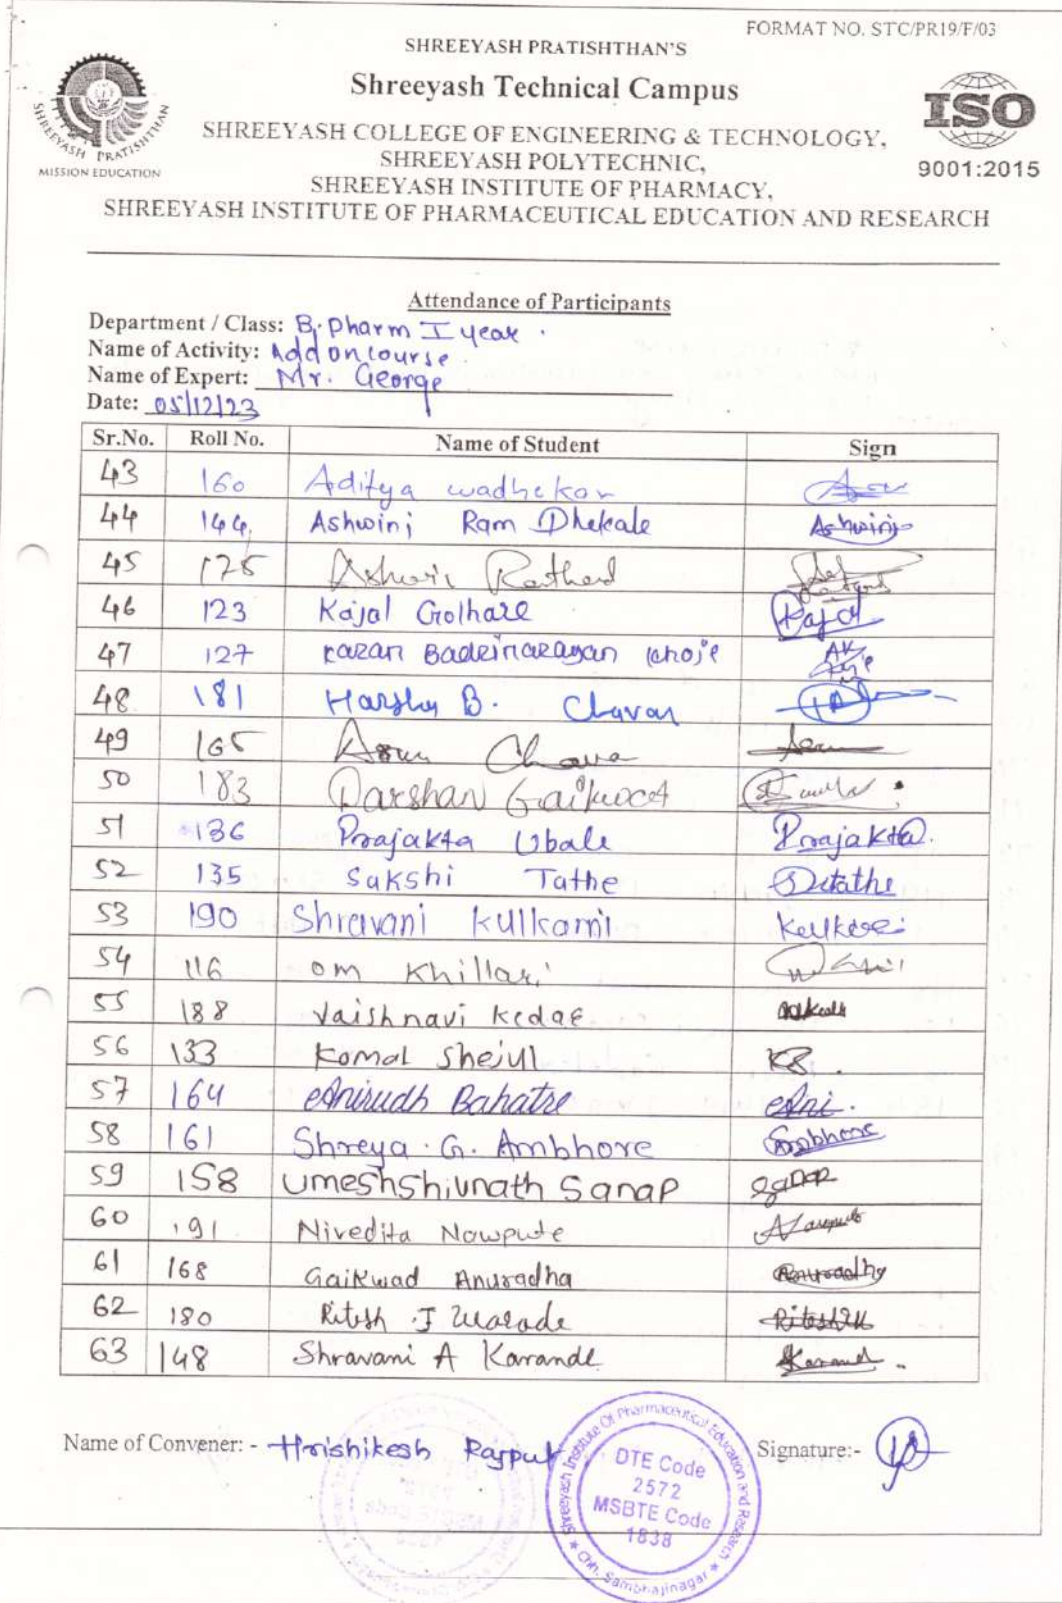 FORMAT NO. STC/PR19/F/03
SHREEYASH PRATISHTHAN'S
Shreeyash Technical Campus
SHREEYASH COLLEGE OF ENGINEERING & TECHNOLOGY,
SHREEYASH POLYTECHNIC,
SHREEYASH INSTITUTE OF PHARMACY,
SHREEYASH INSTITUTE OF PHARMACEUTICAL EDUCATION AND RESEARCH
SHREEYASH PRATISHTHAN
MISSION EDUCATION
ISO
9001:2015
Attendance of Participants
Department / Class: B. Pharm I year.
Name of Activity: Add on course
Name of Expert: Mr. George
Date: 05/12/23
Sr.No. Roll No. Name of Student Sign
43 160 Aditya wadhekar
44 144 Ashwini Ram Dhekale Ashwini
45 175 Ashwin Rathod
46 123 Kajal Golhare Kajal
47 127 Karan Badrinarayan khoje
48 181 Harsha B. Chavan
49 165 Arun Chavan
50 183 Darshan Gaikwad
51 136 Prajakta Ubale Prajakta
52 135 Sakshi Tathe
53 190 Shravani Kulkarni
54 116 om Khillari
55 188 Vaishnavi Kedar
56 133 Komal Shejul KS.
57 164 Anirudh Bahatre Ani.
58 161 Shreya. G. Ambhore Ambhore
59 158 Umesh Shivnath Sanap Sanap
60 191 Nivedita Nawpute
61 168 Gaikwad Anuradha Anuradha
62 180 Ritesh J
63 148 Shravani A Karande
Name of Convener: - Hrishikesh Rajput Signature:-
Shreeyash Institute Of Pharmaceutical Education and Research
DTE Code
2572
MSBTE Code
1838
Chh. Sambhajinagar